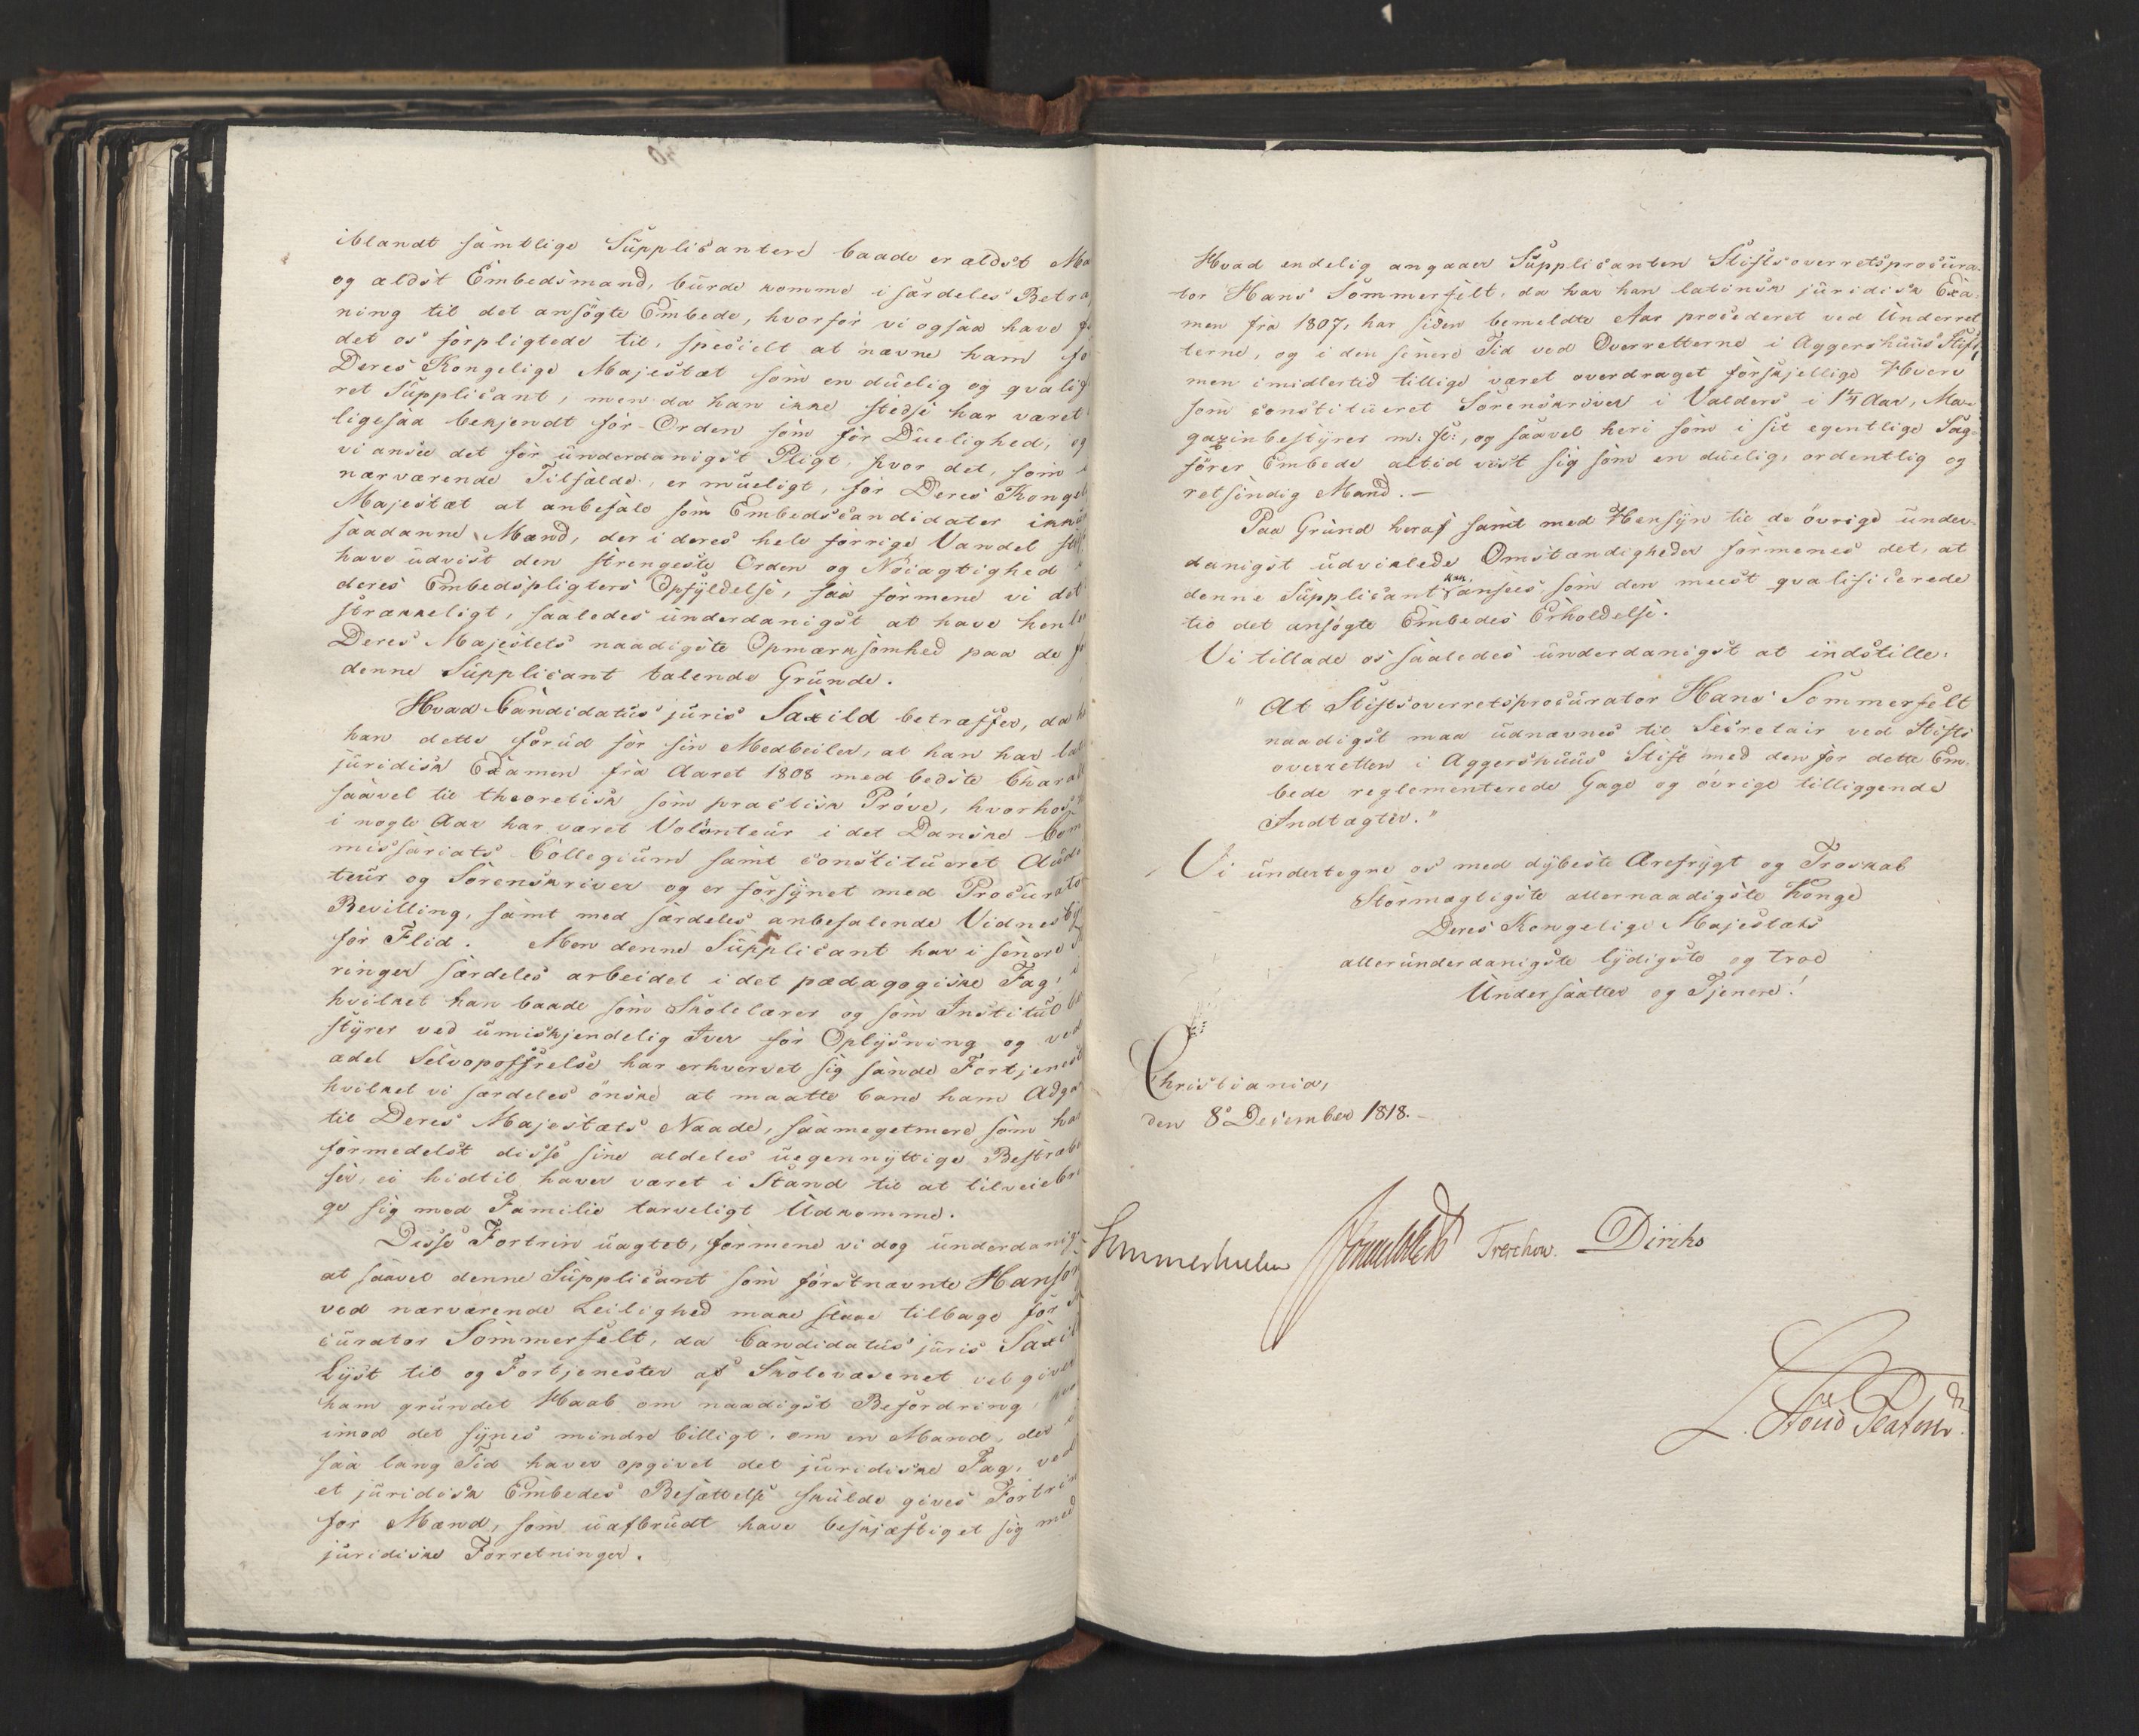 iblandt samtlige Supplicantere baade er ældst Ma
og ældst Embedsmand, burde komme i særdeles Betra
ning til det ansögte Embede, hvorfor vi ogsaa have
det os forpligtede til, specielt at nævne ham fo
Deres Kongelige Majestæt som en duelig og qvalif
ret Supplicant, men da han ikke stedse har været
ligesaa bekjendt for Orden som for Duelighed, og
vi ansee det for underdanigst Pligt, hvor det, som i
nærværende Tilfælde, er mueligt, for Deres Kongel
Majestæt at anbefale som Embedscandidater ikku
saadanne Mænd, der i deres hele forrige Vandel
have udvist den strengeste Orden og Nöiagtighed i
deres Embedspligters Opfyldelse, saa formene vi det
strækkeligt, saaledes underdanigst at have henle
Deres Majestets naadigste Opmærksomhed paa de f
denne Supplicant talende Grunde.
Hvad Candidatus juris Saxild betræffer, da h
han dette forud for sin Medbeiler, at han har lat
juridisk Examen fra Aaret 1808 med bedste Charakt
saavel til theoretisk som practisk Pröve, hvorhos
i nogle Aar har været Volonteur i det Danske Com
missariats Collegium samt constitueret Audi
teur og Sorenskriver og er forsynet med Procurato
Bevilling, samt med særdeles anbefalende Vidnesby
for Flid. Men denne Supplicant har i senere
ringer særdeles arbeidet i det pædagogiske Fag, i
hvilket han baade som Skolelærer og som Institutbe
styrer ved umiskjendelig Iver for Oplysning og ved
ædel Selvopoffrelse har erhvervet sig sande Fortjenest
hvilket vi særdeles önske at maatte bane ham Adga
til Deres Majestæts Naade, saameget mere som han
formedelst disse sine aldeles uegennyttige Bestræbe
ser, ei hidtil haver været i Stand til at tilveiebri
ge sig med Familie tarveligt Udkomme.
Disse Fortrin uagtet, formene vi dog underdanig
at saavel denne Supplicant som förstnævnte Hanson
ved nærværende Leilighed maae staae tilbage for
curator Sommerfelt, da Candidatus juris Saxil
Lyst til og Fortjenester af Skolevæsenet vel giver
ham grundet Haab om naadigst Befordring, hvor
imod det synes mindre billigt, om en Mand, der i
saa lang Tid haver opgivet det juridiske Fag, ved
et juridisk Embedes Besættelse skulde gives Fortrin
for Mænd, som uafbrudt have beskjæftiget sig med
juridiske Forretninger.
Hvad endelig angaaer Supplicanten Stiftsoverretsprocura-
tor Hans Sommerfelt, da har han latinsk juridisk Exa-
men fra 1807, har siden bemeldte Aar procederet ved Underret
terne, og i den senere Tid ved Overretterne i Aggershuus Stift,
men imidlertid tillige været overdraget forskjellige Hverv
som constitueret Sorenskriver i Valders i 1¼ Aar, Ma-
gazinbestyrer m: fl:, og saavel heri som i sit egentlige Sag-
förer Embede altid viist sig som en duelig, ordentlig og
retsindig Mand.-
Paa Grund heraf samt med Hensyn til de övrige under-
danigst udviklede Omstændigheder formenes det, at
denne Supplicant kan ansees som den meest qvalificerede
til det ansögte Embedes Erholdelse.
Vi tillade os saaledes underdanigst at indstille:
"At Stiftsoverretsprocurator Hans Sommerfelt
naadigst maa udnævnes til Secretair ved Stifts
overretten i Aggershuus Stift med den for dette Em-
bede reglementerede Gage og övrige tilliggende
Indtægter."
Vi undertegne os med dybeste Ærefrygt og Troskab
Stormægtigste allernaadigste Konge
Deres Kongelige Majestæts
allerunderdanigste lydigste og troe
Undersaatter og Tjenere!
Christiania,
den 8de December 1818.-
Sommerhielm Treschow. Diriks